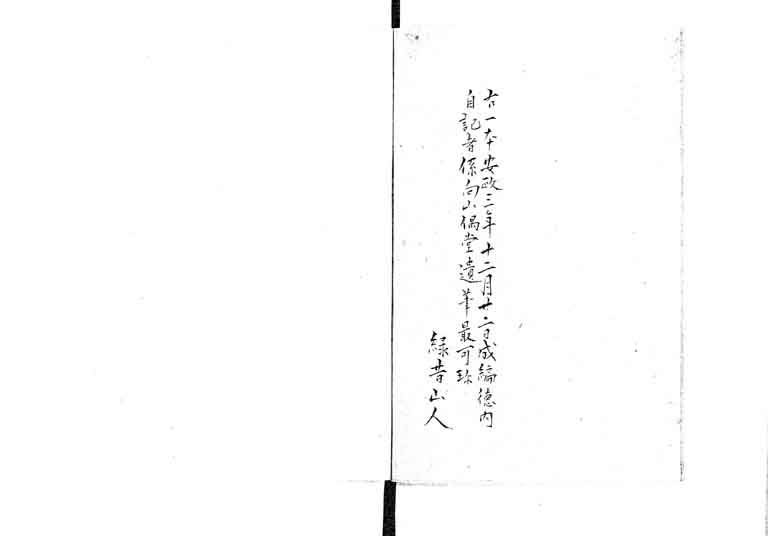 右一本安政三年十二月廿二日成編徳内
自記者係向山偶堂遺筆最可珍
緑昔山人